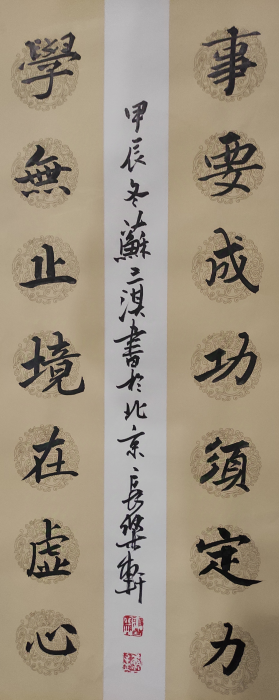 事要成功須定力
學無止境在虛心
甲辰冬蘇二淇書於北京長樂軒